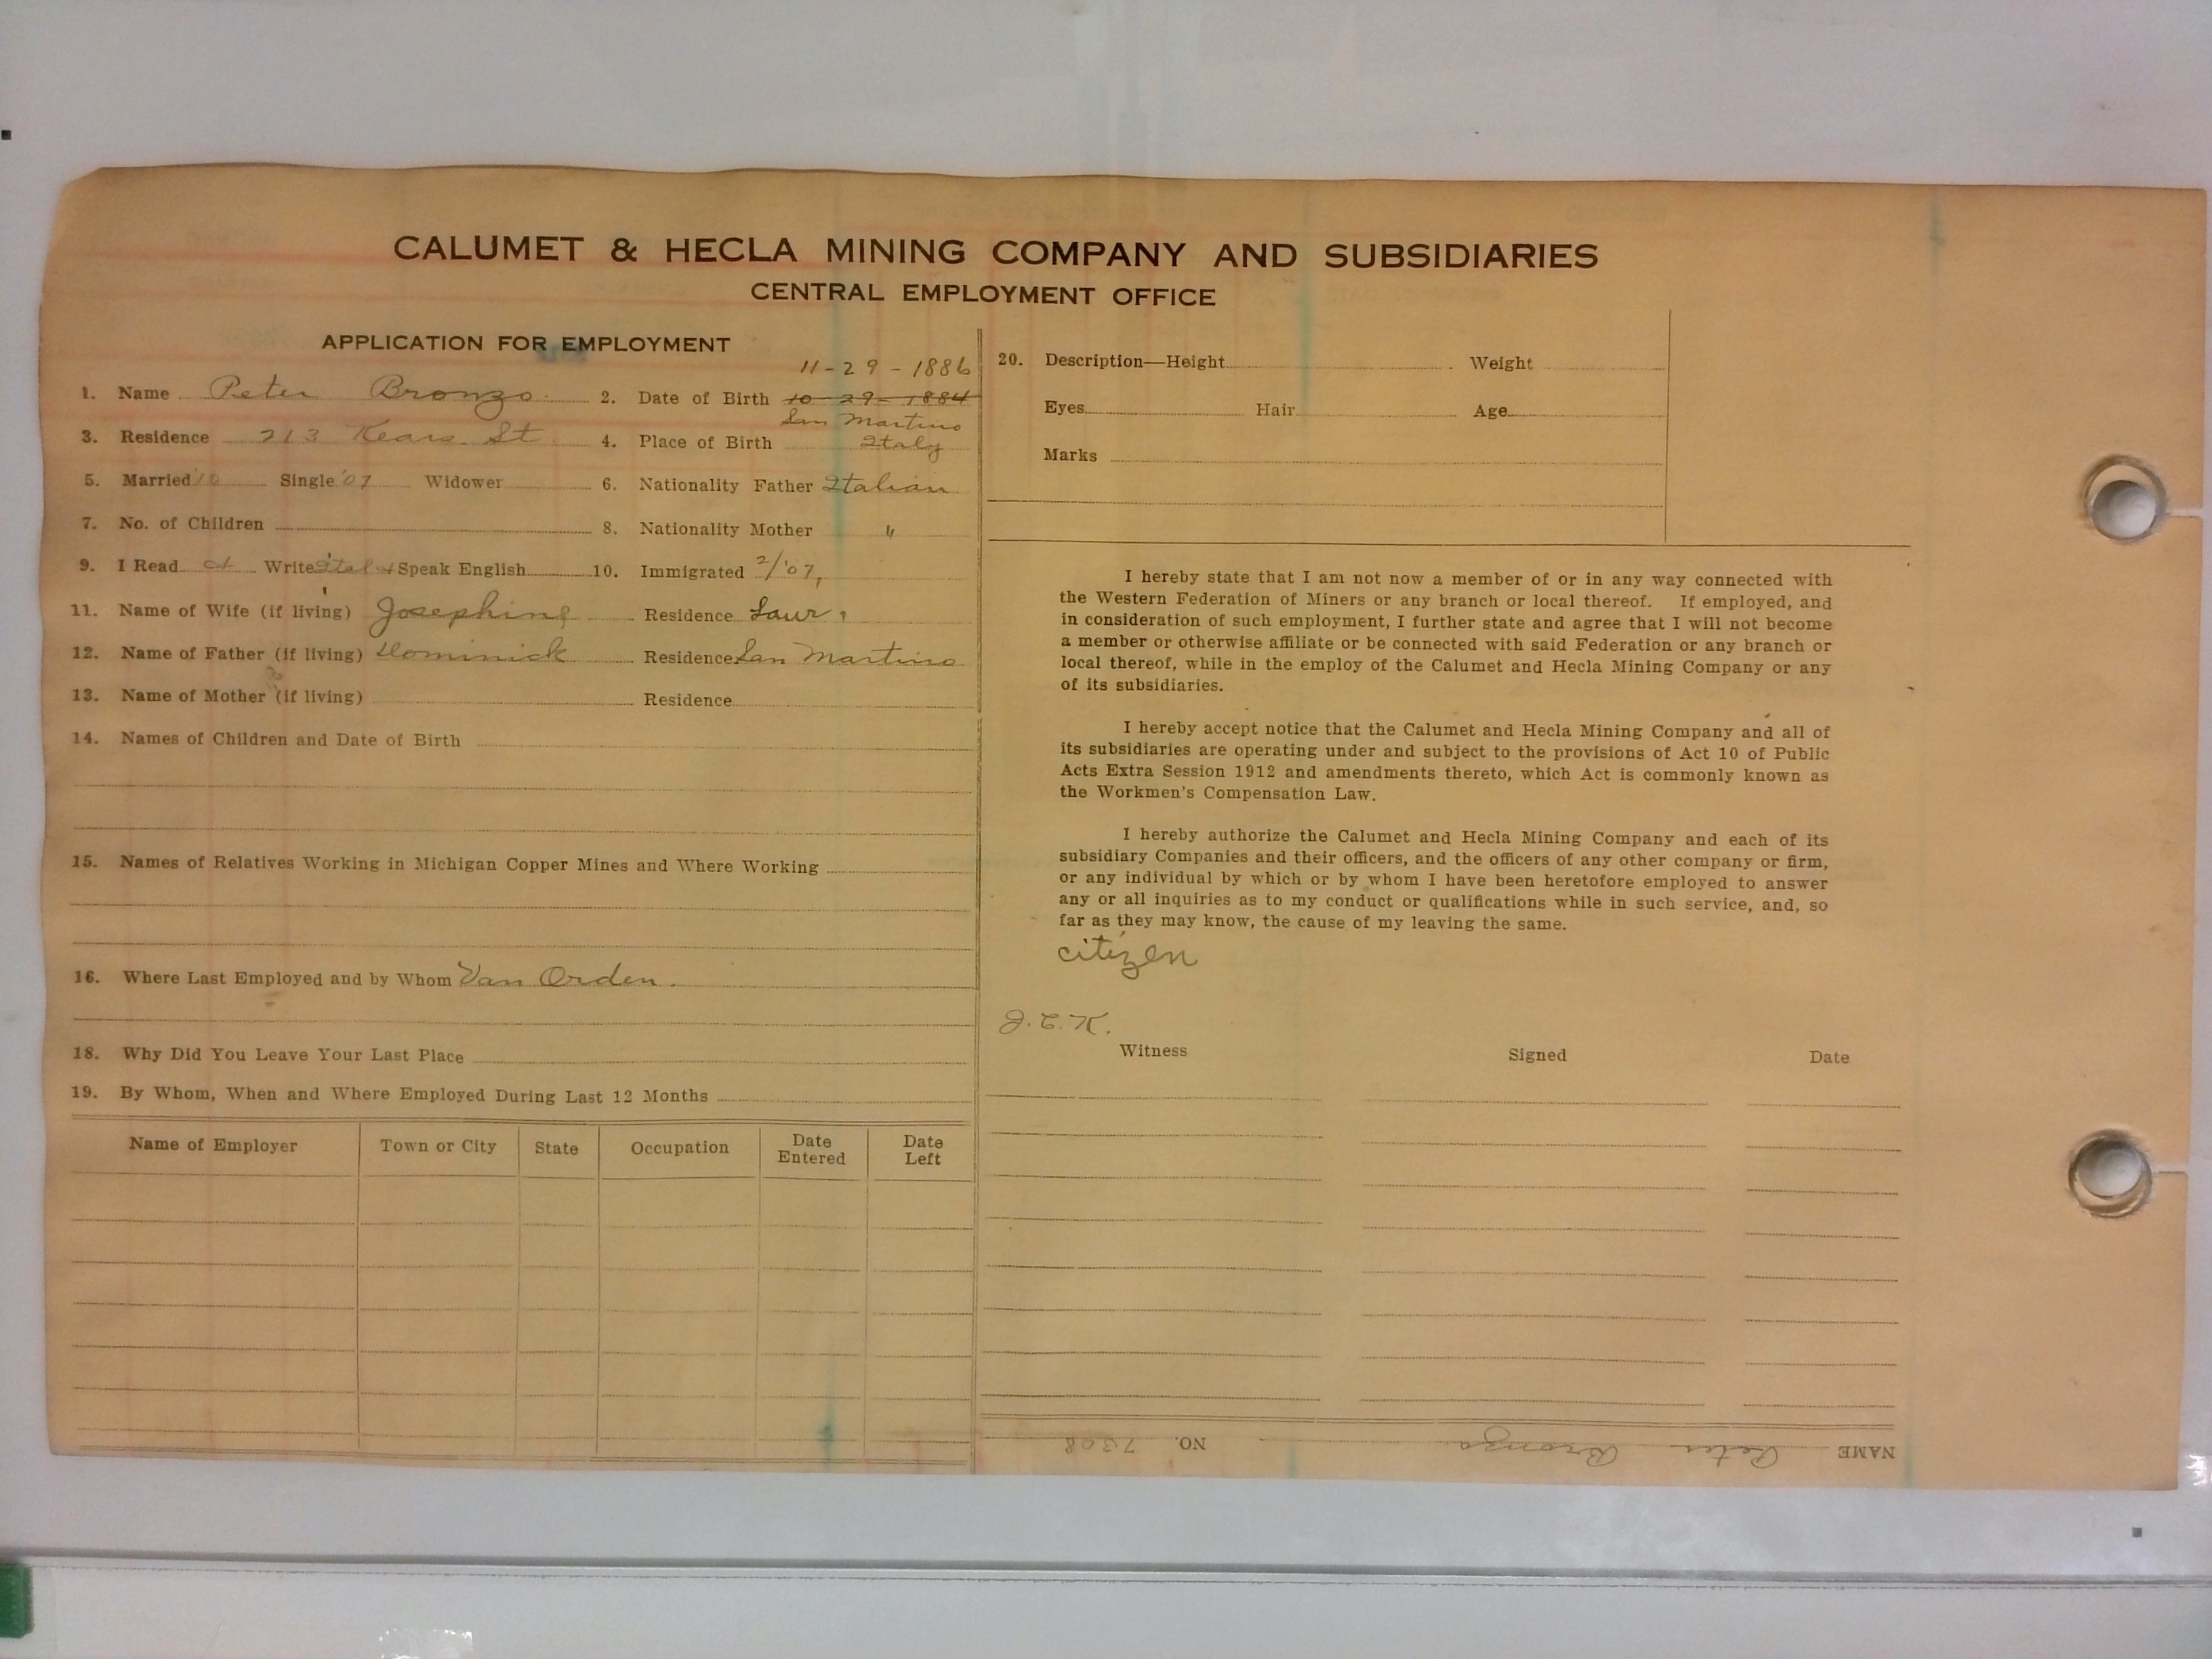 CALUMET & HECLA MINING COMPANY AND SUBSIDIARIES
CENTRAL EMPLOYMENT OFFICE
APPLICATION FOR EMPLOYMENT
11-29-1886
1. Name Peter Bronzo. 2. Date of Birth 10-29-1884
San Martino
3. Residence 213 Kears. St 4. Place of Birth Italy
5. Married '10 Single '07 Widower 6. Nationality Father Italian
7. No. of Children 8. Nationality Mother "
9. I Read & Write Ital & Speak English 10. Immigrated 2/'07,
11. Name of Wife (if living) Josephine Residence
12. Name of Father (if living) Dominick Residence San Martino
13. Name of Mother (if living) Residence
14. Names of Children and Date of Birth
15. Names of Relatives Working in Michigan Copper Mines and Where Working
16. Where Last Employed and by Whom Van Orden.
18. Why Did You Leave Your Last Place
19. By Whom, When and Where Employed During Last 12 Months
Name of Employer Town or City State Occupation Date Entered Date Left
20. Description—Height Weight
Eyes Hair Age
Marks
I hereby state that I am not now a member of or in any way connected with
the Western Federation of Miners or any branch or local thereof. If employed, and
in consideration of such employment, I further state and agree that I will not become
a member or otherwise affiliate or be connected with said Federation or any branch or
local thereof, while in the employ of the Calumet and Hecla Mining Company or any
of its subsidiaries.
I hereby accept notice that the Calumet and Hecla Mining Company and all of
its subsidiaries are operating under and subject to the provisions of Act 10 of Public
Acts Extra Session 1912 and amendments thereto, which Act is commonly known as
the Workmen's Compensation Law.
I hereby authorize the Calumet and Hecla Mining Company and each of its
subsidiary Companies and their officers, and the officers of any other company or firm,
or any individual by which or by whom I have been heretofore employed to answer
any or all inquiries as to my conduct or qualifications while in such service, and, so
far as they may know, the cause of my leaving the same.
citizen
J.E.K.
Witness Signed Date
NAME Peter Bronzo NO. 7308